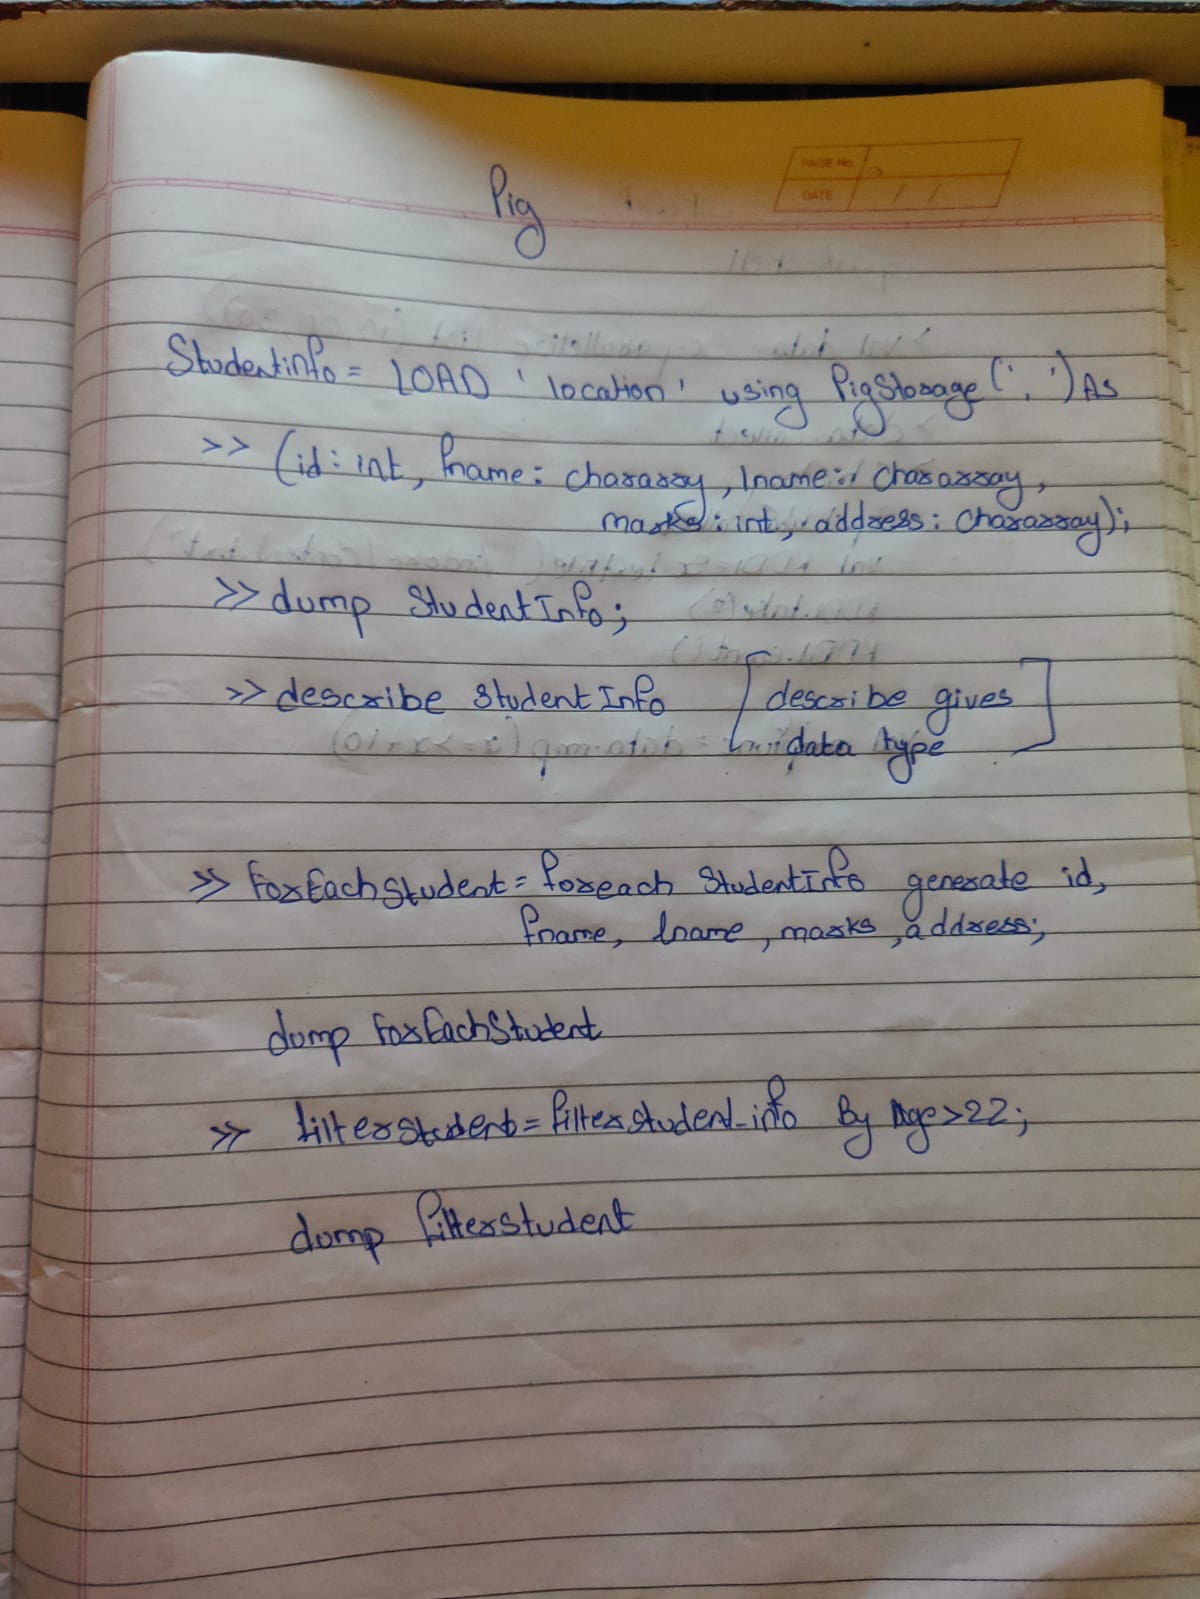 PAGE No.
DATE / /
Pig
Studentinfo = LOAD 'location' using PigStorage(',') As
>> (id: int, fname: chararay, lname: chararray,
marks: int, address: chararray);
>> dump StudentInfo;
>> describe StudentInfo [describe gives
data type]
>> ForEachStudent = foreach StudentInfo generate id,
fname, lname, marks, address;
dump ForEachStudent
>> filterstudent = filter student_info By Age>22;
dump filterstudent